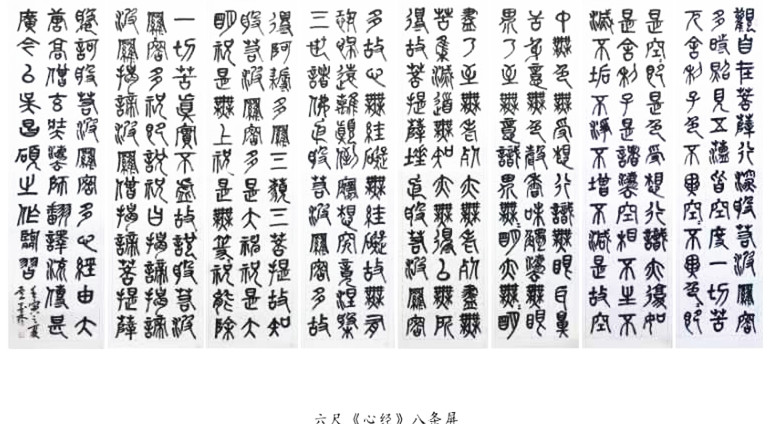 觀自在菩薩行深般若波羅密
多時照見五蘊皆空度一切苦
厄舍利子色不異空不異色即
是空即是色受想行識亦復如
是舍利子是諸法空相不生不
滅不垢不淨不增不減是故空
中無色無受想行識無眼耳鼻
舌身意無色聲香味觸法無眼
界乃至無意識界無明亦無明
盡乃至無老死亦無老死盡無
苦集滅道無知亦無得以無所
得故菩提薩埵依般若波羅密
多故心無罣礙無罣礙故無有
恐怖遠離顛倒夢想究竟涅槃
三世諸佛依般若波羅密多故
得阿耨多羅三藐三菩提故知
般若波羅密多是大神咒是大
明咒是無上咒是無等咒能除
一切苦真實不虛故說般若波
羅密多咒即說咒曰揭諦揭諦
波羅揭諦波羅僧揭諦菩提薩
婆訶般若波羅密多心經由大
唐高僧玄奘法師翻譯流傳甚
廣今以吳昌碩之作臨習
壬寅之夏
六尺《心经》八条屏